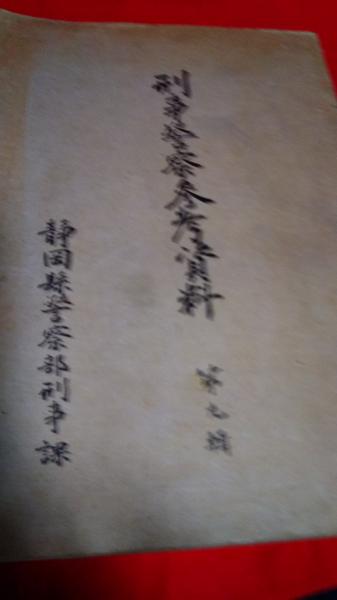 刑事警察参考資料
第九輯
静岡縣警察部刑事課